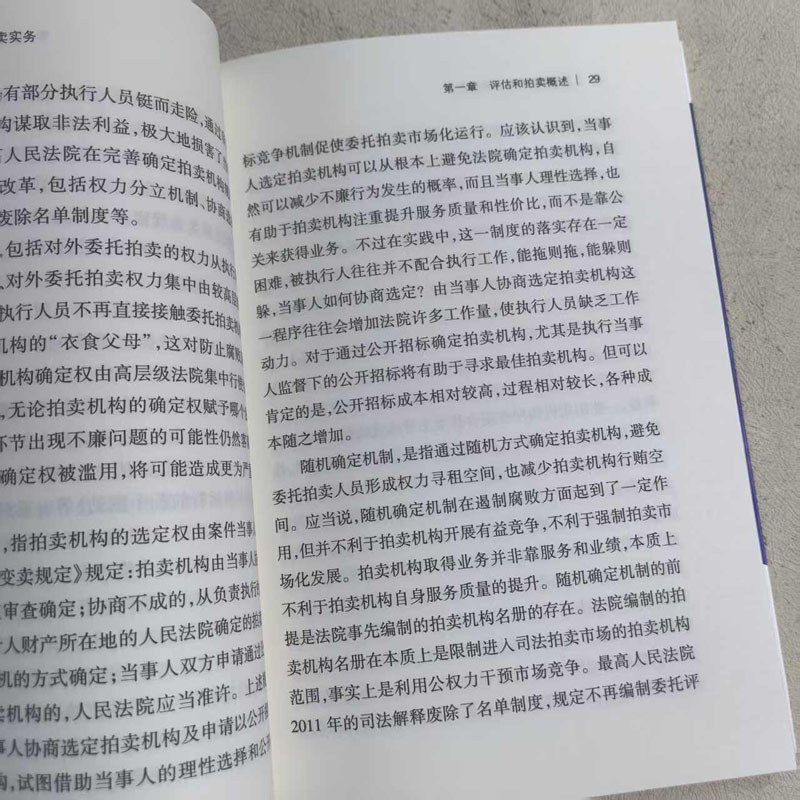 卖实务
有部分执行人员铤而走险，通过
构谋取非法利益，极大地损害了
人民法院在完善确定拍卖机构
改革，包括权力分立机制、协商
废除名单制度等。
，包括对外委托拍卖的权力从执行
对外委托拍卖权力集中由较高层
执行人员不再直接接触委托拍卖
机构的“衣食父母”，这对防止腐败
机构确定权由高层级法院集中行使
，无论拍卖机构的确定权赋予哪个
环节出现不廉问题的可能性仍然客
确定权被滥用，将可能造成更为严
，指拍卖机构的选定权由案件当事人
变卖规定》规定：拍卖机构由当事人
审查确定；协商不成的，从负责执行的
人财产所在地的人民法院确定的拍卖
机的方式确定；当事人双方申请通过
卖机构的，人民法院应当准许。上述
事人协商选定拍卖机构及申请以公开
构，试图借助当事人的理性选择和公
第一章 评估和拍卖概述 | 29
标竞争机制促使委托拍卖市场化运行。应该认识到，当事
人选定拍卖机构可以从根本上避免法院确定拍卖机构，自
然可以减少不廉行为发生的概率，而且当事人理性选择，也
有助于拍卖机构注重提升服务质量和性价比，而不是靠公
关来获得业务。不过在实践中，这一制度的落实存在一定
困难，被执行人往往并不配合执行工作，能拖则拖，能躲则
躲，当事人如何协商选定？由当事人协商选定拍卖机构这
一程序往往会增加法院许多工作量，使执行人员缺乏工作
动力。对于通过公开招标确定拍卖机构，尤其是执行当事
人监督下的公开招标将有助于寻求最佳拍卖机构。但可以
肯定的是，公开招标成本相对较高，过程相对较长，各种成
本随之增加。
随机确定机制，是指通过随机方式确定拍卖机构，避免
委托拍卖人员形成权力寻租空间，也减少拍卖机构行贿空
间。应当说，随机确定机制在遏制腐败方面起到了一定作
用，但并不利于拍卖机构开展有益竞争，不利于强制拍卖市
场化发展。拍卖机构取得业务并非靠服务和业绩，本质上
不利于拍卖机构自身服务质量的提升。随机确定机制的前
提是法院事先编制的拍卖机构名册的存在。法院编制的拍
卖机构名册在本质上是限制进入司法拍卖市场的拍卖机构
范围，事实上是利用公权力干预市场竞争。最高人民法院
2011 年的司法解释废除了名单制度，规定不再编制委托评